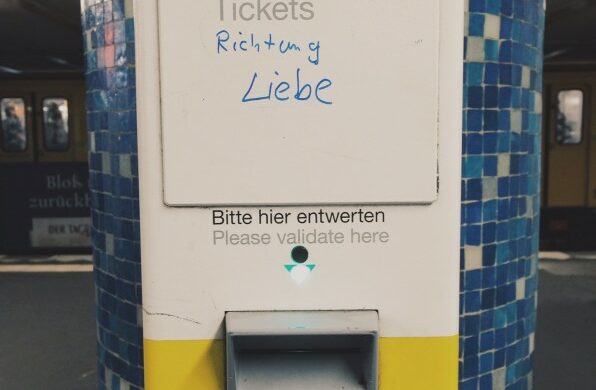 Tickets
Richtung
Liebe
Bitte hier entwerten
Please validate here
Bloß
zurück
DER TAGE